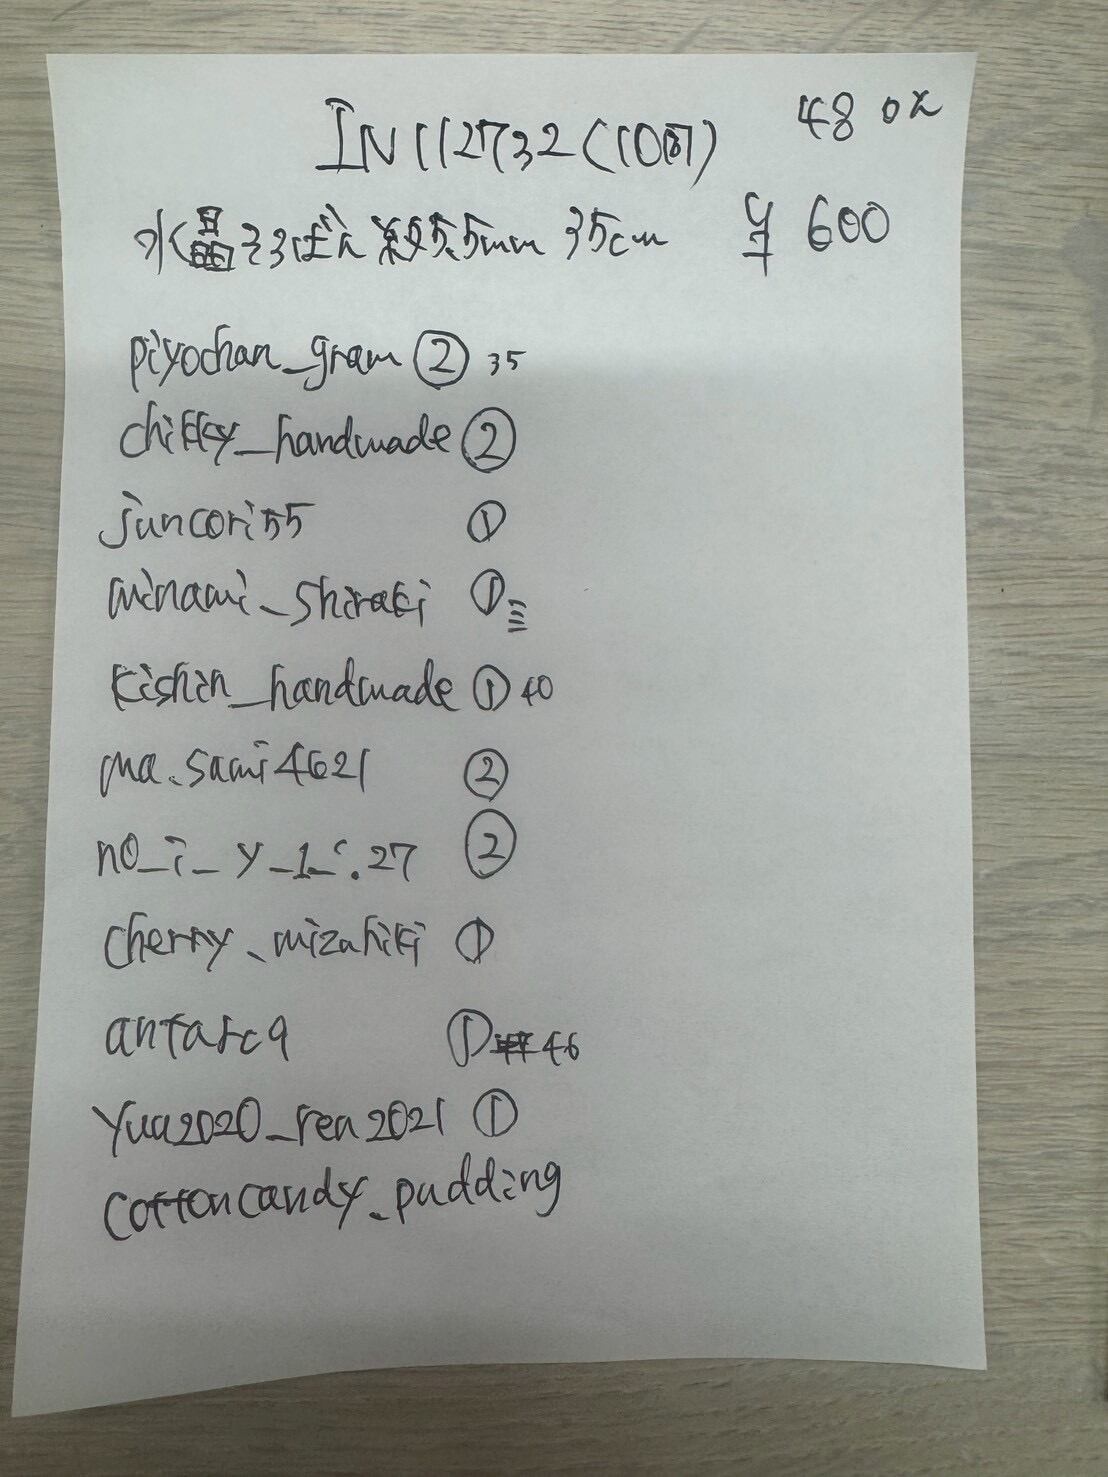 IN112732 (10個) 48 0x
水晶そろばん 約5.5mm 35cm ¥600
piyochan_gram ② 35
chikky_handmade ②
juncori55 ①
minami_shiraki ①
kishin_handmade ① 40
ma.sami4621 ②
no_i_y_1_.27 ②
cherry_mizuhiki ①
antarc9 ① 46
yua2020_rea2021 ①
cottoncandy_pudding